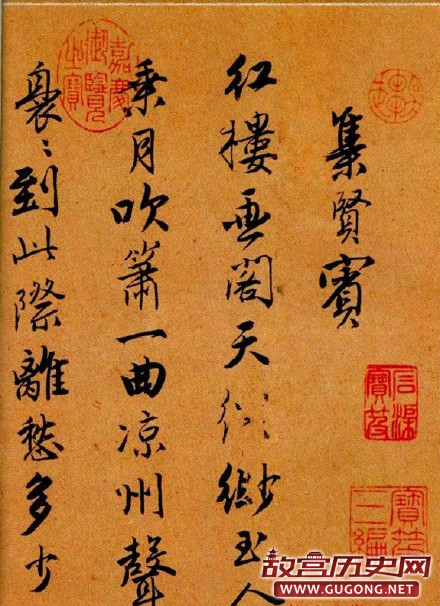 集賢賓
红樓畫閣天緲玉人
乘月吹簫一曲凉州聲
裊〻到此際離愁多少
嘉慶御覽之寶
石渠寶笈
寶笈三編
故宫历史网
WWW.GUGONG.NET